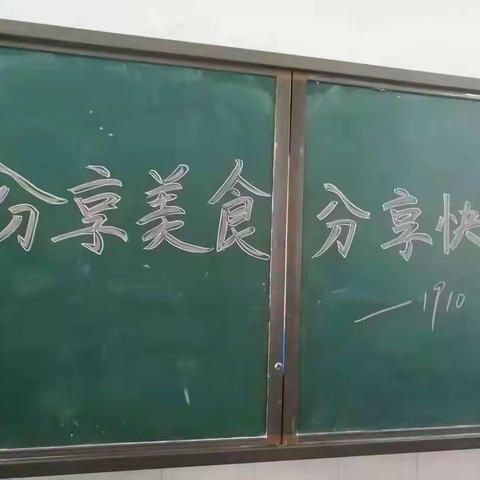 分享美食 分享快
—1910